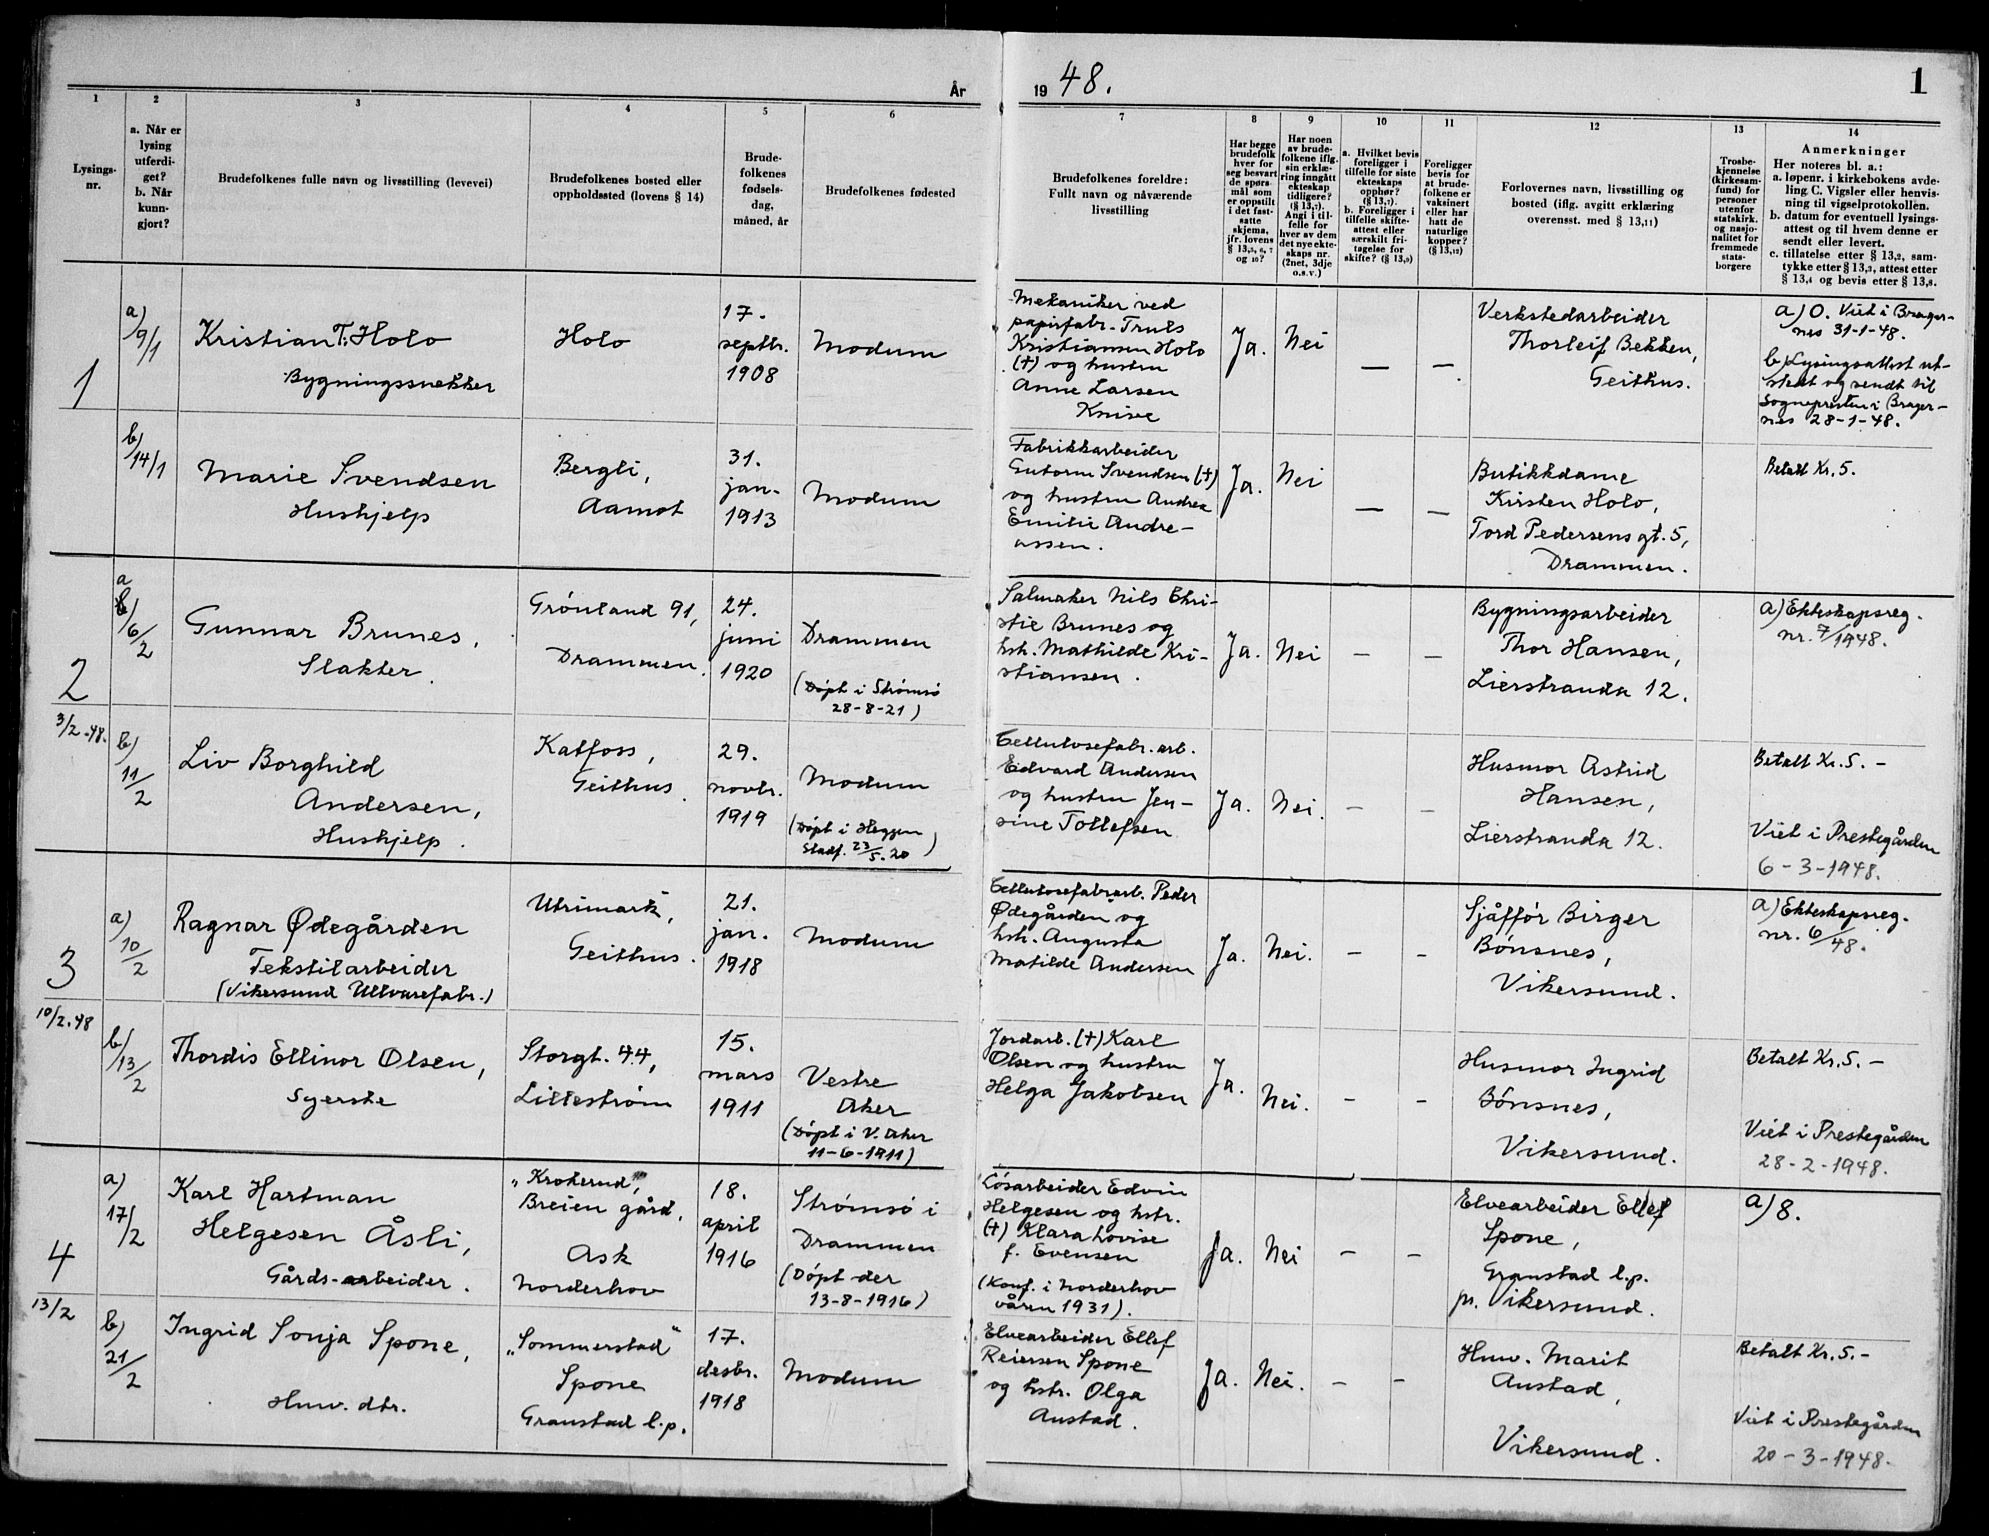 År
19 48.
1
1
2
3
4
5
6
7
8
9
10
11
12
13
14
Lysings-
nr.
a. Når er
lysing
utferdi-
get?
b. Når
kunn-
gjort?
Brudefolkenes fulle navn og livsstilling (levevei)
Brudefolkenes bosted eller
oppholdssted (lovens § 14)
Brude-
folkenes
fødsels-
dag,
måned, år
Brudefolkenes fødested
Brudefolkenes foreldre:
Fullt navn og nåværende
livsstilling
Har begge
brudefolk
hver for
seg besvart
de spørs-
mål som
er oppstilt
i det fast-
satte
skjema,
jfr. lovens
§ 13,5, 6, 7
og 10?
Har noen
av brude-
folkene iflg.
sin erklæ-
ring inngått
ekteskap
tidligere?
(§ 13,7).
Angi i til-
felle for
hver av dem
det nye ekte-
skaps nr.
(2net, 3dje
o.s.v.)
a. Hvilket bevis
foreligger i
tilfelle for siste
ekteskaps
opphør?
(§ 13,7).
b. Foreligger i
tilfelle skifte-
attest eller
særskilt fri-
tagelse for
skifte? (§ 13,9)
Foreligger
bevis for
at brude-
folkene er
vaksinert
eller har
hatt de
naturlige
kopper?
(§ 13,12)
Forlovernes navn, livsstilling og
bosted (iflg. avgitt erklæring
overensst. med § 13,11)
Trosbe-
kjennelse
(kirkesam-
fund) for
personer
utenfor
statskirk.
og nasjo-
nalitet for
fremmede
stats-
borgere
Anmerkninger
Her noteres bl. a.:
a. løpenr. i kirkebokens avde-
ling C. Vigsler eller henvis-
ning til vigselprotokollen.
b. datum for eventuell lysings-
attest og til hvem denne er
sendt eller levert.
c. tillatelse etter § 13,2, sam-
tykke etter § 13,3, attest etter
§ 13,4 og bevis etter § 13,8.
1
a)
9/1
Kristian T. Holo
Bygningssnekker
Holo
17.
septbr.
1908
Modum
Mekaniker ved
papirfabr. Truls
Kristiansen Holo
(†) og hustru
Anne Larsen
Knive
Ja.
Nei
—
—
Verkstedarbeider
Thorleif Bekken,
Geithus.
a) O. Viet i Brager-
nes 31-1-48.
b) Lysingsattest ut-
stedt og sendt til
Sognepresten i Brager-
nes 28-1-48.
b)
14/1
Marie Svendsen
Hushjelp
Bergli,
Aamot
31.
jan.
1913
Modum
Fabrikkarbeider
Gutorm Svendsen (†)
og hustru Andrea
Emilie Andre-
assen.
Ja.
Nei
—
—
Butikkdame
Kirsten Holo,
Tord Pedersens gt. 5,
Drammen.
Betalt Kr. 5.
2
3/2-48.
a
6/2
Gunnar Brunes,
Slakter.
Grønland 91,
Drammen.
24.
juni
1920
Drammen
(Døpt i Strømsø
28-8-21)
Salmaker Nils Chri-
stie Brunes og
hsh. Mathilde Kri-
stiansen.
Ja.
Nei
—
—
Bygningsarbeider
Thor Hansen,
Lierstranda 12.
a) Ekteskapsreg.
nr. 7/1948.
b)
11/2
Liv Borghild
Andersen,
Hushjelp.
Katfoss,
Geithus.
29.
novbr.
1919
Modum
(Døpt i Heggen
Stadf. 23/5.20)
Cellulosefabr. arb.
Edvard Andersen
og hustru Jen-
sine Tollefsen
Ja.
Nei.
—
—
Husmor Astrid
Hansen,
Lierstranda 12.
Betalt Kr. 5.-
Viet i Prestegården
6-3-1948.
3
10/2.48
a)
10/2
Ragnar Ødegården
Tekstilarbeider
(Vikersund Ullvarefabr.)
Utrimark,
Geithus.
21.
jan.
1918
Modum
Cellulosefabrarb. Peder
Ødegården og
hsh. Augusta
Matilde Andersen
Ja.
Nei.
—
—
Sjåffør Birger
Bønsnes,
Vikersund.
a) Ekteskapsreg.
nr. 6/48.
b/
13/2
Thordis Ellinor Olsen,
Syerske
Storgt. 44,
Lillestrøm
15.
mars
1911
Vestre
Aker
(Døpt i V. Aker
11-6-1911)
Jordarb. (†) Karl
Olsen og hustru
Helga Jakobsen
Ja.
Nei.
—
—
Husmor Ingrid
Bønsnes,
Vikersund.
Betalt Kr. 5.-
Viet i Prestegården
28-2-1948.
4
13/2
a)
17/2
Karl Hartman
Helgesen Åsli,
Gårds-arbeider.
"Krokerud",
Breien gård,
Ask
Norderhov
18.
april
1916
Strømsø i
Drammen
(Døpt der
13-8-1916)
Løsarbeider Edvin
Helgesen og hstr.
(†) Klara Lovise
f. Evensen
(Konf. i Norderhov
våren 1931).
Ja.
Nei
—
—
Elvearbeider Ellef
Spone,
Granstad l.p.
pr. Vikersund.
a) 8.
b)
21/2
Ingrid Sonja Spone,
Huw. dtr.
"Sommerstad"
Spone
Granstad l.p.
17.
desbr.
1918
Modum
Elvearbeider Ellef
Reiersen Spone
og hstr. Olga
Austad.
Ja.
Nei.
—
—
Huw. Marit
Austad,
Vikersund.
Betalt Kr. 5.-
Viet i Prestegården
20-3-1948.